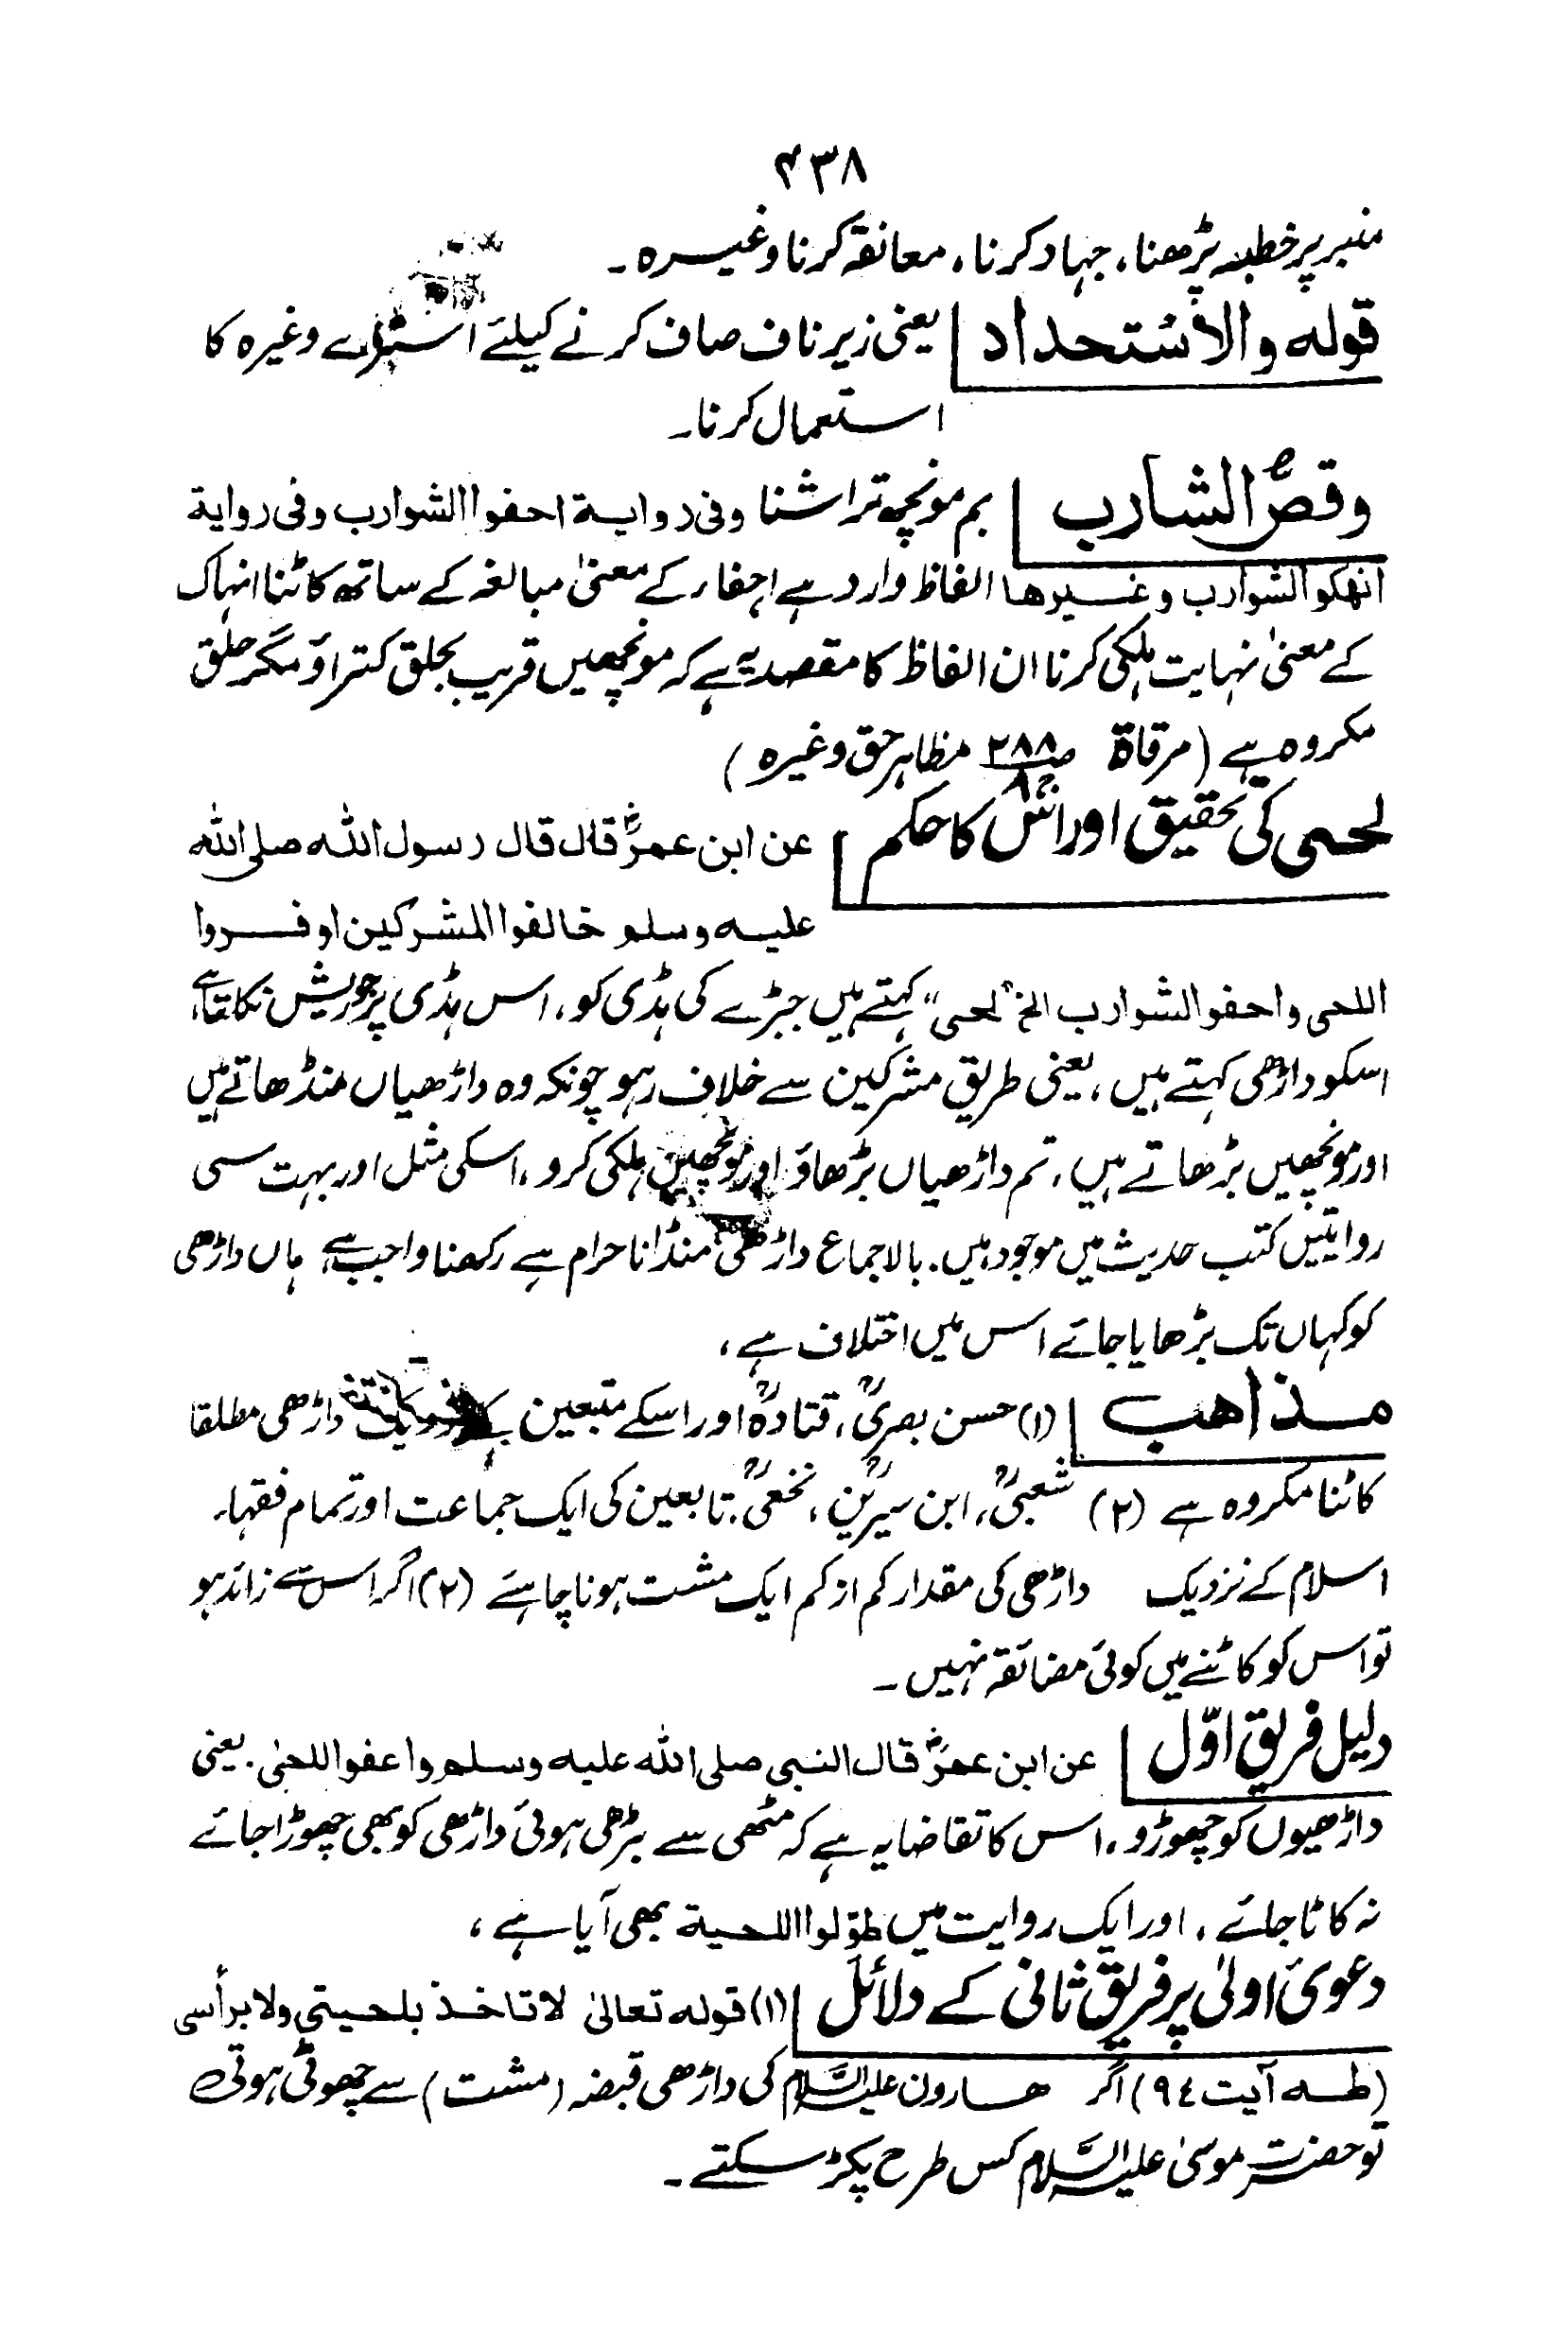 ۴۳۸
منبر پر خطبہ پڑھنا، جہاد کرنا، معانقہ کرنا وغیرہ۔
قوله والاستحداد یعنی زیر ناف صاف کرنے کیلئے استرے وغیرہ کا
استعمال کرنا۔
وقصّ الشارب بم مونچھ تراشنا وفی روایة احفوا الشوارب وفی روایة
انهكوا الشوارب وغیرها الفاظ وارد ہے احفاء کے معنیٰ مبالغہ کے ساتھ کاٹنا انہاک
کے معنیٰ نہایت ہلکی کرنا ان الفاظ کا مقصد یہ ہے کہ مونچھیں قریب بحلق کتراؤ مگر حلق
مکروہ ہے (مرقاة ص۲۸۸ ج۸ مظاہر حق وغیرہ)
لحی کی تحقیق اور اس کا حکم عن ابن عمرؓ قال قال رسول الله صلی الله
علیہ وسلم خالفوا المشرکین اوفروا
اللحی واحفوا الشوارب الخ "لحی" کہتے ہیں جبڑے کی ہڈی کو، اس ہڈی پر جو ریش نکلتا ہے
اسکو داڑھی کہتے ہیں، یعنی طریق مشرکین سے خلاف رہو چونکہ وہ داڑھیاں منڈھاتے ہیں
اور مونچھیں بڑھاتے ہیں، تم داڑھیاں بڑھاؤ اور مونچھیں ہلکی کرو، اسکی مثل اور بہت سی
روایتیں کتب حدیث میں موجود ہیں۔ بالاجماع داڑھی منڈانا حرام ہے رکھنا واجب ہے ہاں داڑھی
کو کہاں تک بڑھایا جائے اس میں اختلاف ہے،
مذاهب (۱) حسن بصریؒ، قتادہؒ اور اسکے متبعین کے نزدیک داڑھی مطلقا
کاٹنا مکروہ ہے (۲) شعبیؒ، ابن سیرینؒ، نخعیؒ، تابعین کی ایک جماعت اور تمام فقہاء
اسلام کے نزدیک داڑھی کی مقدار کم از کم ایک مشت ہونا چاہئے (۲) اگر اس سے زائد ہو
تو اس کو کاٹنے میں کوئی مضائقہ نہیں۔
دلیل فریق اوّل عن ابن عمرؓ قال النبی صلی الله علیه وسلم واعفوا اللحیٰ۔ یعنی
داڑھیوں کو چھوڑو، اس کا تقاضا یہ ہے کہ مٹھی سے بڑھی ہوئی داڑھی کو بھی چھوڑا جائے
نہ کاٹا جائے، اور ایک روایت میں طوّلوا اللحیة بھی آیا ہے،
دعویٰ اولیٰ پر فریق ثانی کے دلائل (۱) قوله تعالیٰ لا تاخذ بلحیتی ولا برأسی
(طہ آیت ۹٤) اگر ھارون علیہ السَّلام کی داڑھی قبضہ (مشت) سے چھوٹی ہوتی
تو حضرت موسیٰ علیہ السَّلام کس طرح پکڑ سکتے۔